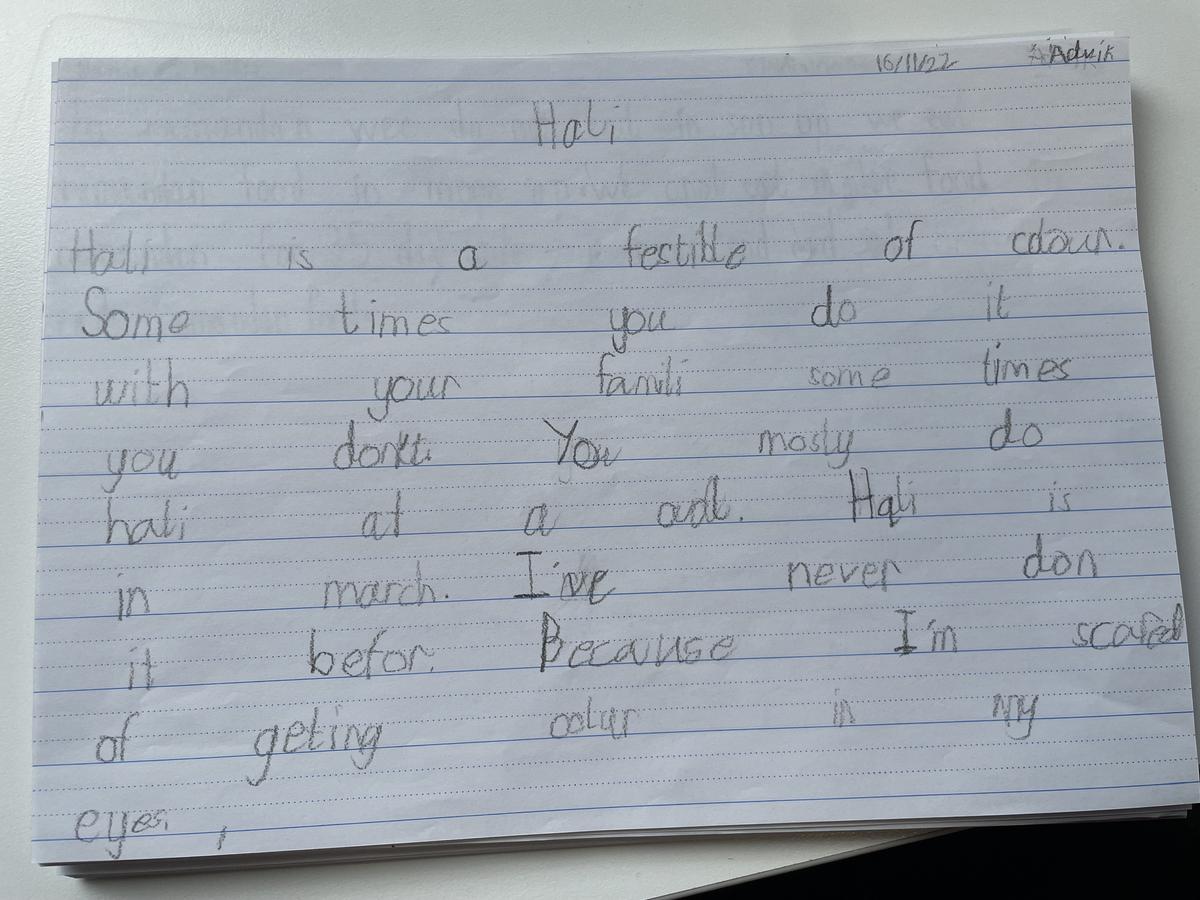 16/11/22 Advik
Hali
Hali is a festible of colour.
Some times you do it
with your famili some times
you don't. You mosly do
hali at a Hali is
in march. I've never don
it befor. Because I'm scared
of geting colur in my
eyes.